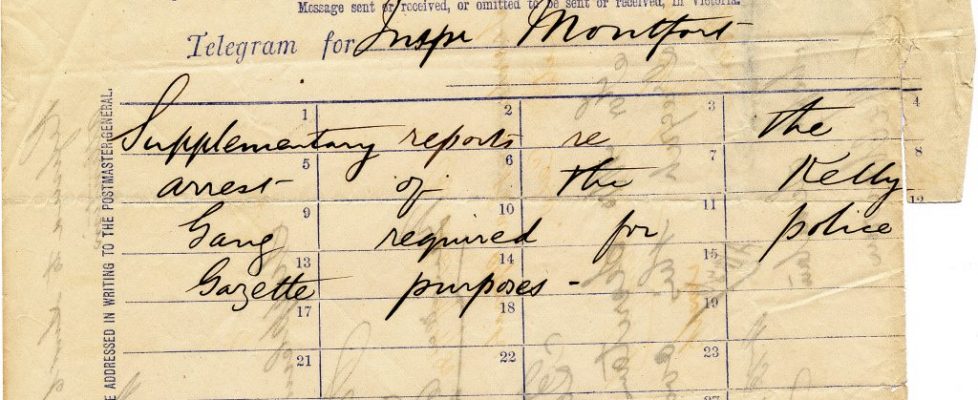 Message sent or received, or omitted to be sent or received, in Victoria.
Telegram for Inspr Montfort
1 2 3 4
Supplementary reports re the
5 6 7 8
arrest of the Kelly
9 10 11 12
Gang required for police
13 14 15
Gazette purposes -
17 18 19
21 22 23
27
E ADDRESSED IN WRITING TO THE POSTMASTER-GENERAL.